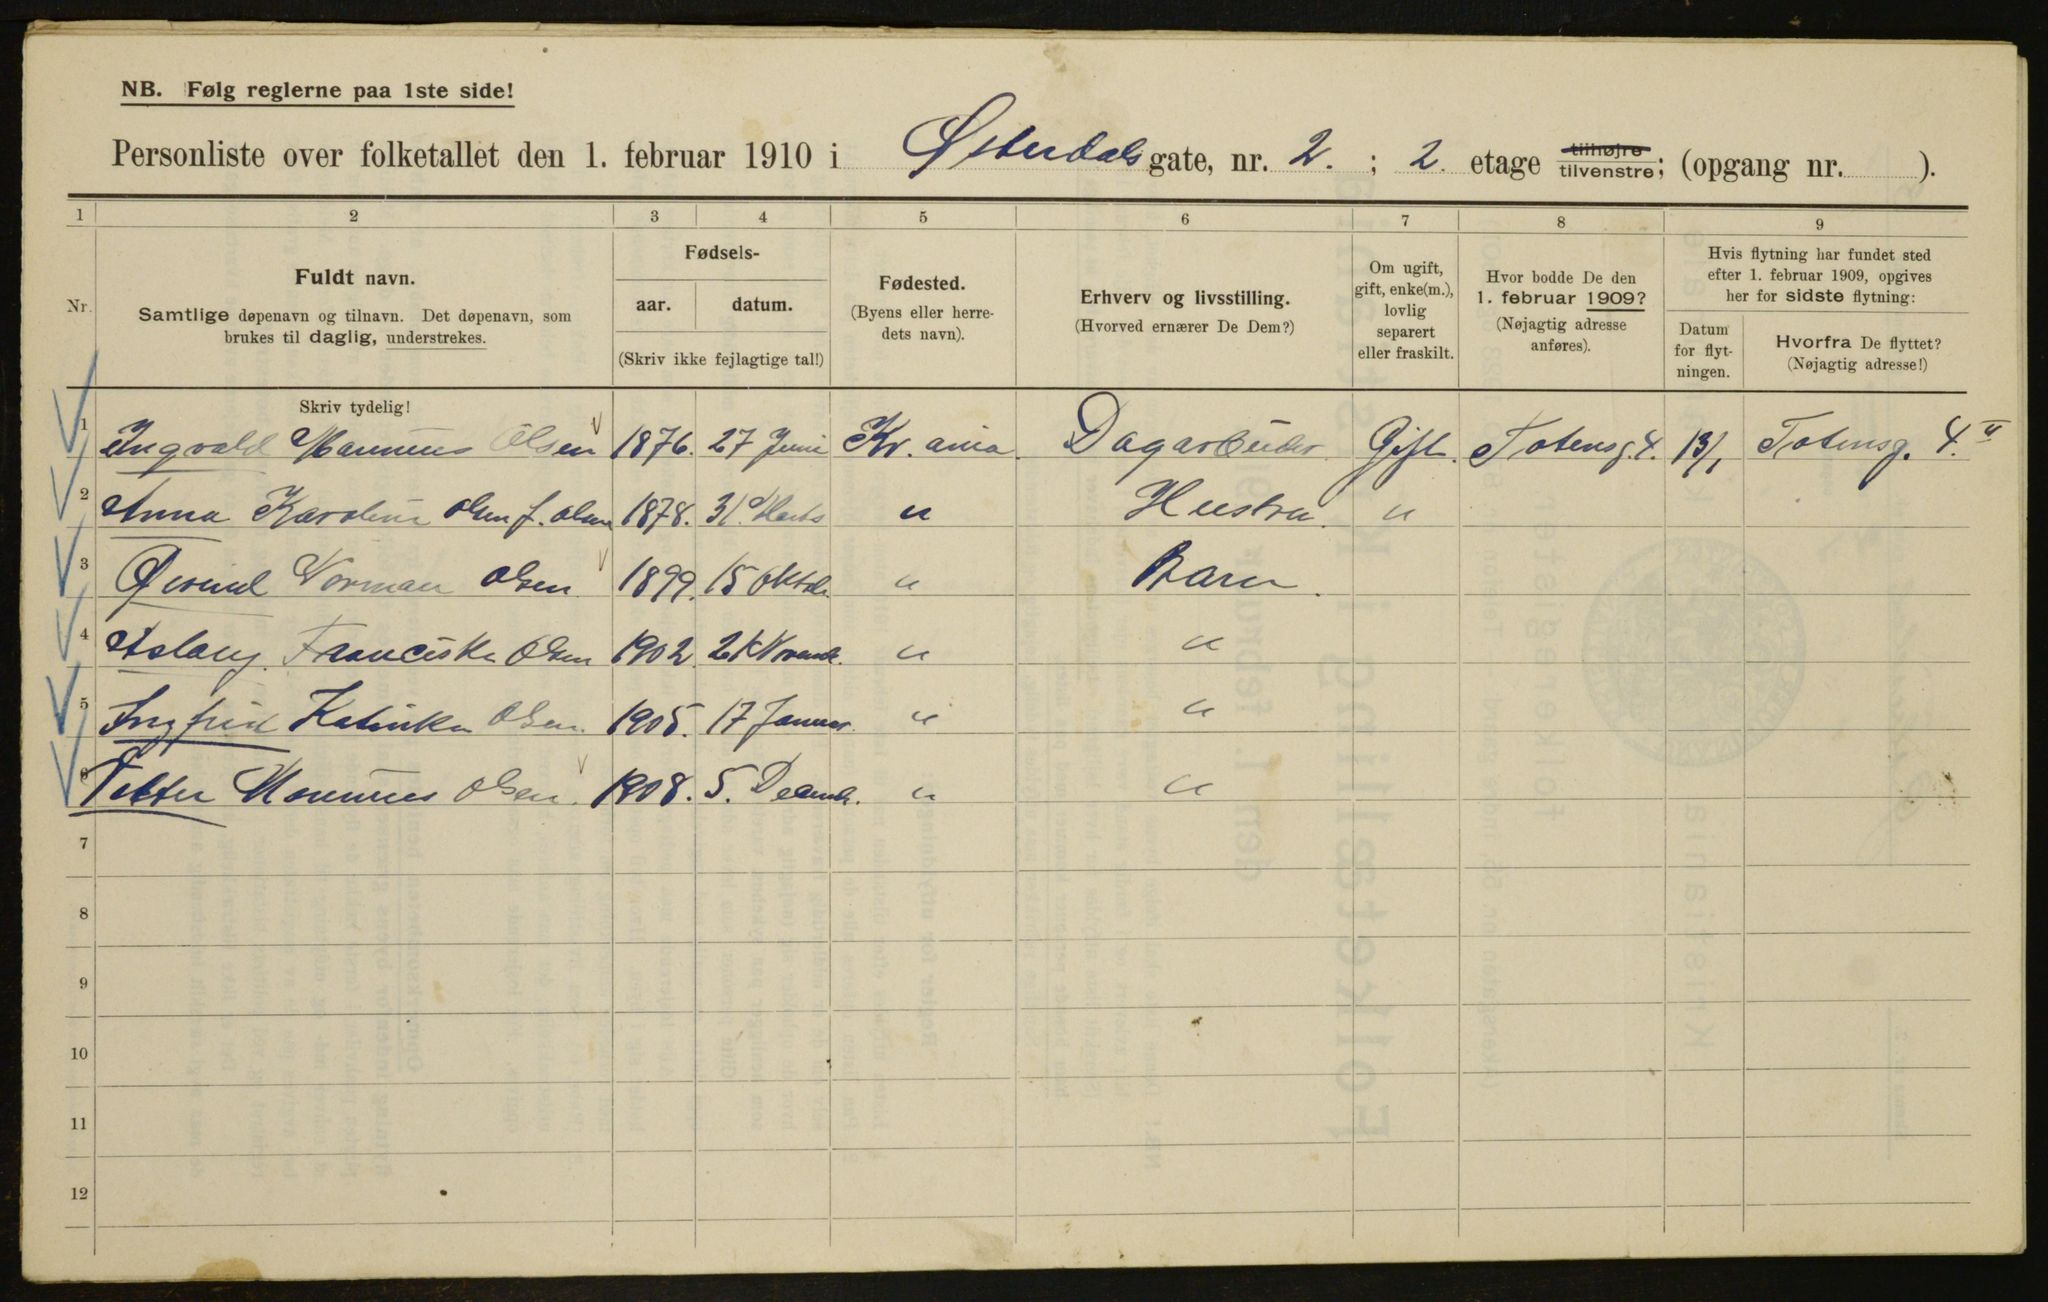 NB. Følg reglerne paa 1ste side!
Personliste over folketallet den 1. februar 1910 i Østerdals gate, nr. 2. ; 2. etage tilhøjre tilvenstre; (opgang nr. ).
1 2 3 4 5 6 7 8 9
Nr.
Fuldt navn.
Samtlige døpenavn og tilnavn. Det døpenavn, som
brukes til daglig, understrekes.
Fødsels-
aar. datum.
(Skriv ikke fejlagtige tal!)
Fødested.
(Byens eller herre-
dets navn).
Erhverv og livsstilling.
(Hvorved ernærer De Dem?)
Om ugift,
gift, enke(m.),
lovlig
separert
eller fraskilt.
Hvor bodde De den
1. februar 1909?
(Nøjagtig adresse
anføres).
Hvis flytning har fundet sted
efter 1. februar 1909, opgives
her for sidste flytning:
Datum
for flyt-
ningen.
Hvorfra De flyttet?
(Nøjagtig adresse!)
Skriv tydelig!
1 Ingvald Olsen 1876. 27 Juni Kr.ania Dagarbeider. Gift. Totensg. 4. 13/1 Totensg. 4. II
2 Anna Karoline Olsen f. Olsen 1878. 31. Marts " Hustru. "
3 Øivind Norman Olsen 1899. 15 Oktob. " Barn.
4 Aslaug Franciska Olsen 1902. Novemb. " "
5 Ingfrid Katinka Olsen. 1905. 17 Januar. " "
6 Petter Olsen. 1908. 5. Decemb. " "
7
8
9
10
11
12